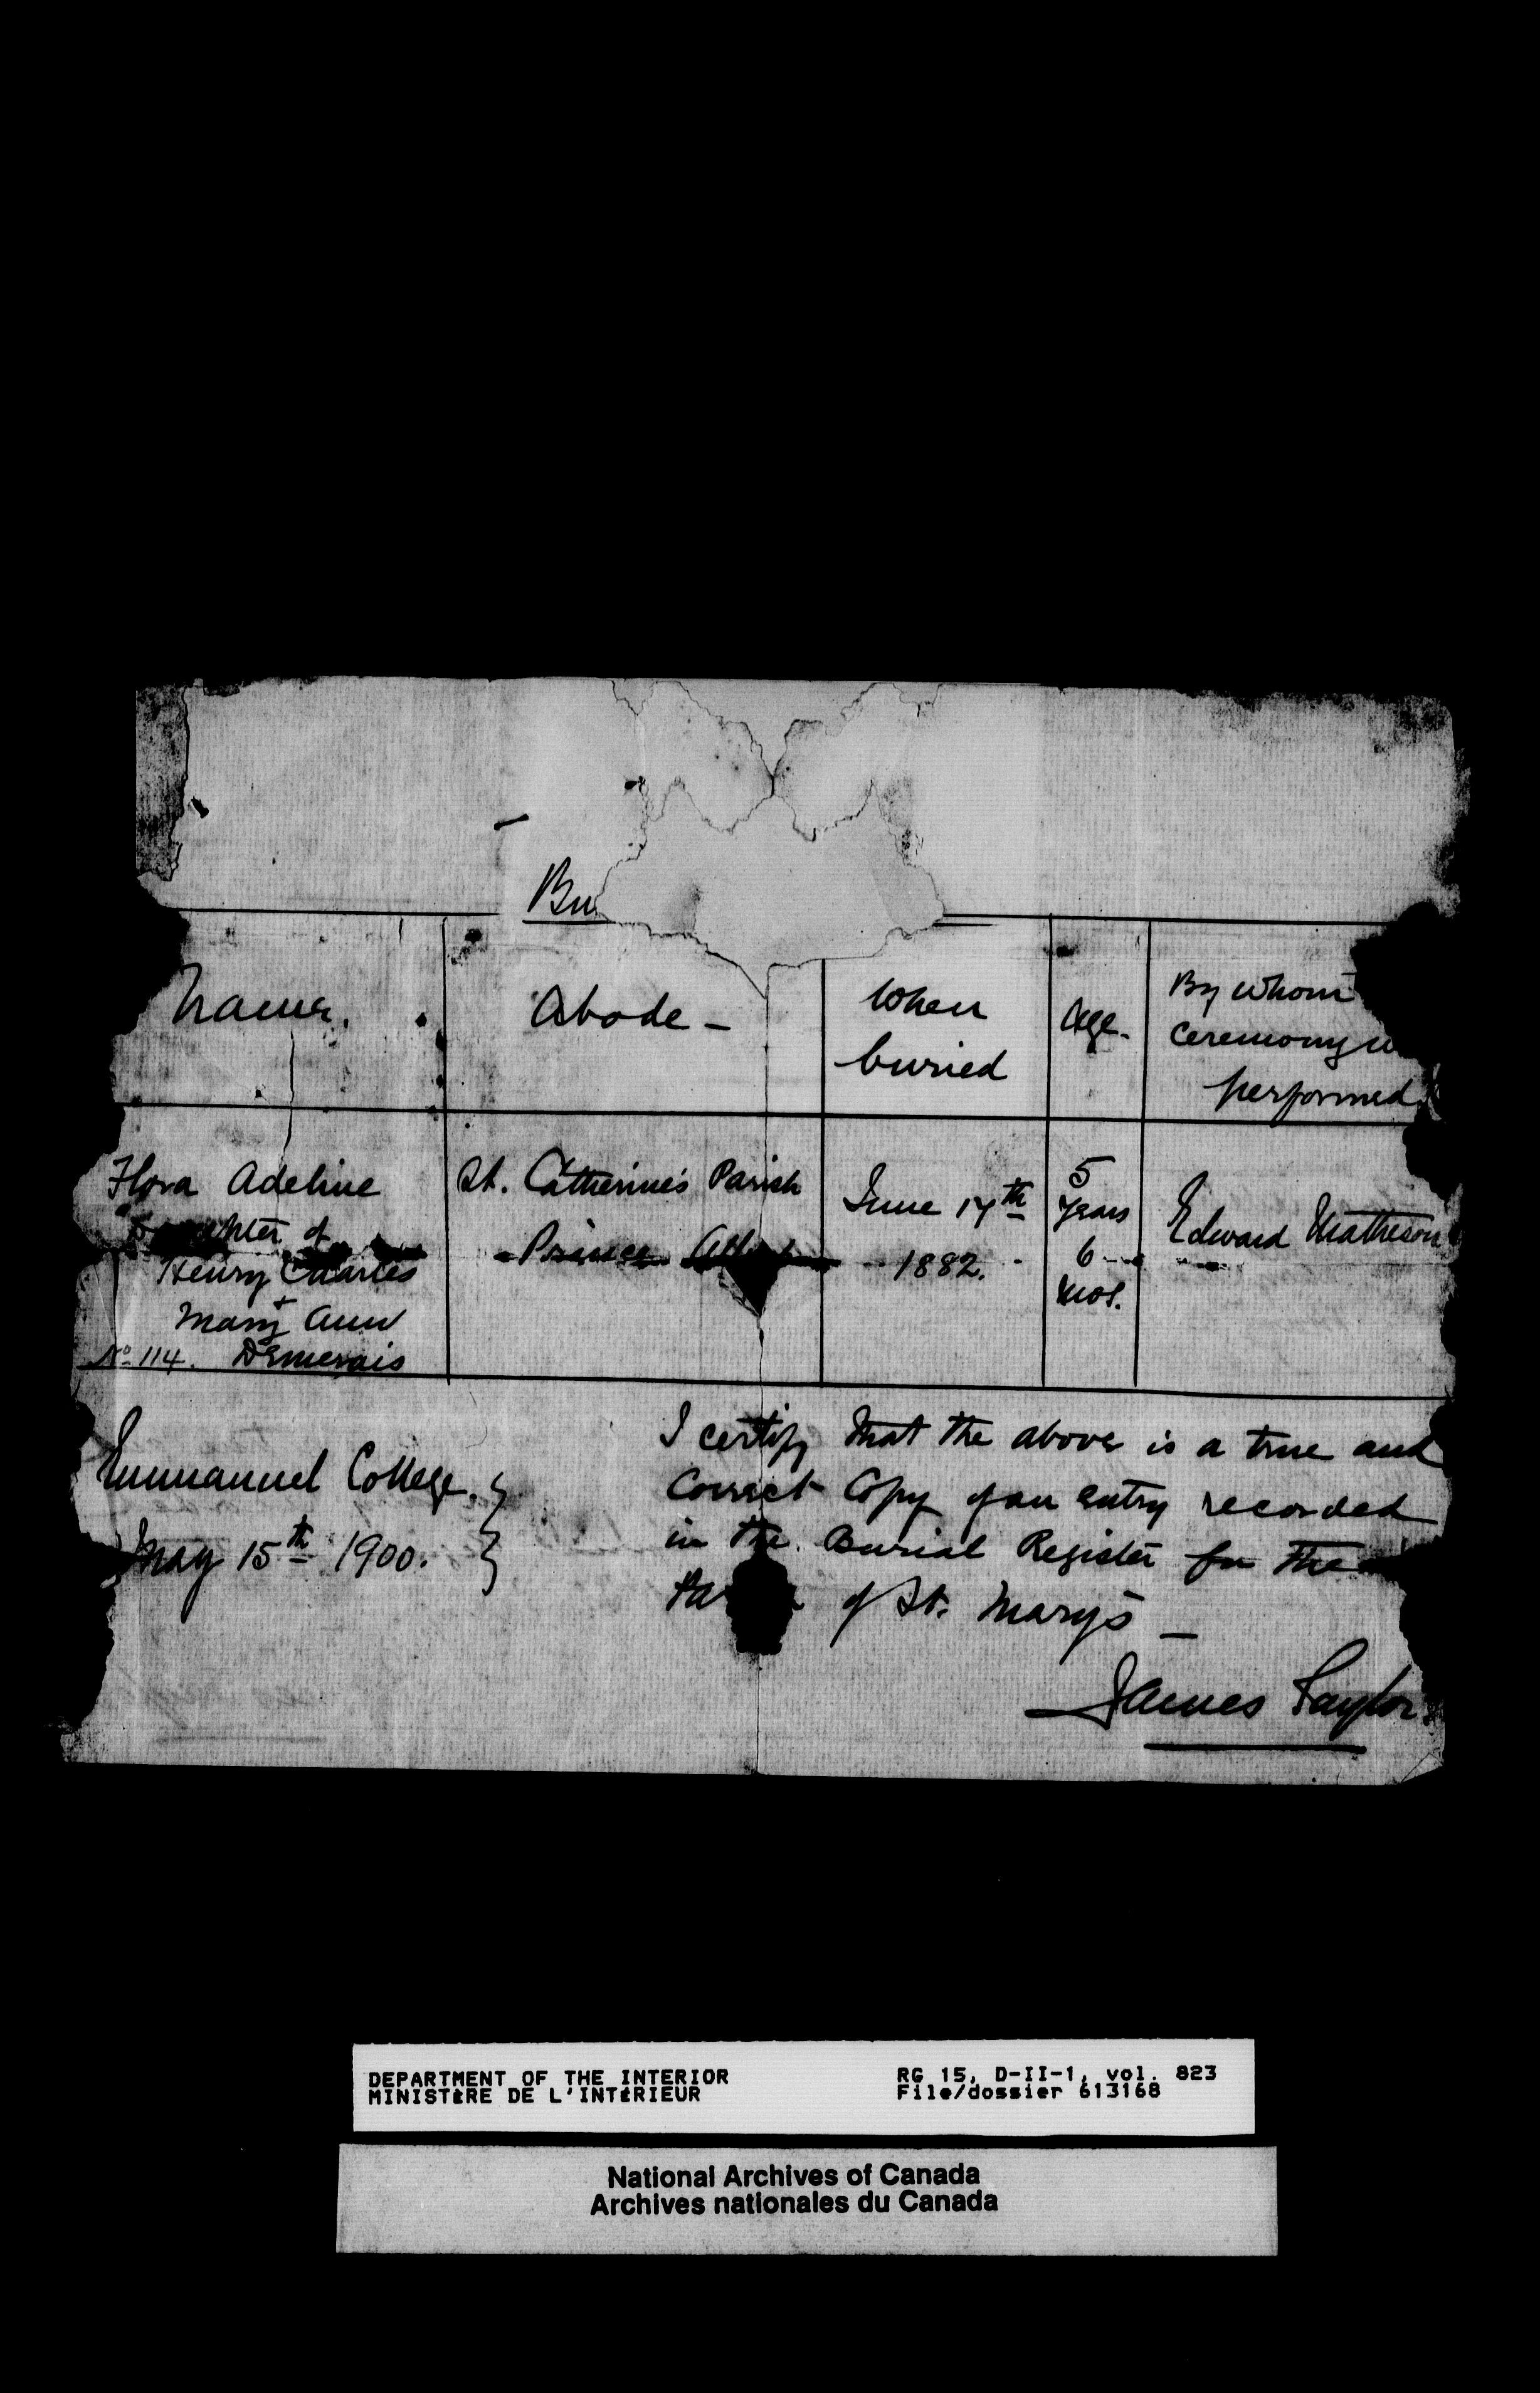 Bu
Name.
Abode -
When
buried
Age.
By whom
ceremony
performed
Flora Adeline
of
Henry Charles
+
Mary Ann
No 114. Demerais
St. Catherine's Parish
Prince
June 17th
1882.
5
years
6
mos.
Edward Matheson
Emmanuel College.
May 15th 1900.
I certify that the above is a true and
Correct Copy of an entry recorded
in the Burial Register for the
of St. Mary's -
James Taylor.
DEPARTMENT OF THE INTERIOR
MINISTÈRE DE L'INTÉRIEUR
RG 15, D-II-1, vol. 823
File/dossier 613168
National Archives of Canada
Archives nationales du Canada